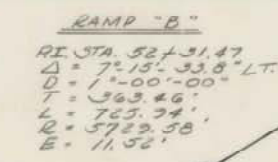 RAMP "B"
P.I. STA. 52+31.47
Δ = 7°-15'-33.8" LT.
D = 1°-00'-00"
T = 363.46'
L = 725.94'
R = 5729.58
E = 11.52'